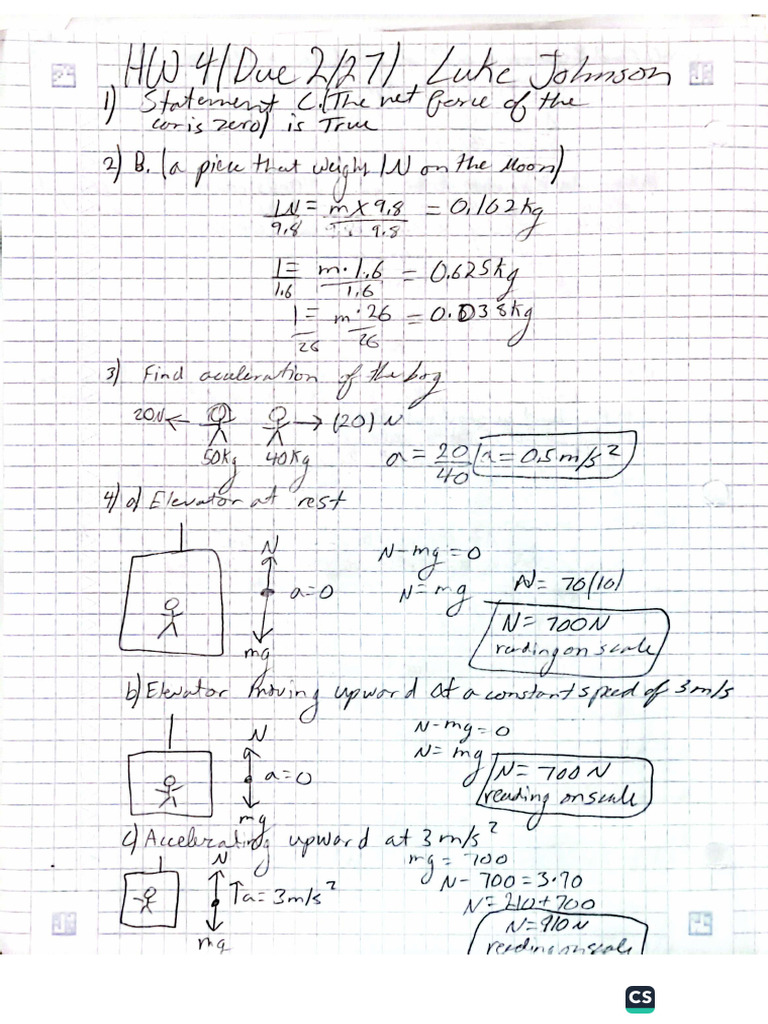 HW 4 (Due 2/27) Luke Johnson
1) Statement C. (The net force of the
car is zero) is True
2) B. (a piece that weighs 1N on the Moon)
1N = m x 9.8 = 0.102kg
9.8 9.8
1 = m · 1.6 = 0.625kg
1.6 1.6
1 = m · 26 = 0.038kg
26 26
3) Find acceleration of the boy
20N ← → (20) N
50kg 40kg
a = 20/40 a = 0.5 m/s²
4) a) Elevator at rest
N
a = 0
mg
N - mg = 0
N = mg
N = 70(10)
N = 700N
reading on scale
b) Elevator moving upward at a constant speed of 3m/s
N
a = 0
mg
N - mg = 0
N = mg
N = 700N
reading on scale
c) Accelerating upward at 3m/s²
N
↑a = 3m/s²
mg
mg = 700
N - 700 = 3·70
N = 210 + 700
N = 910N
reading on scale
CS